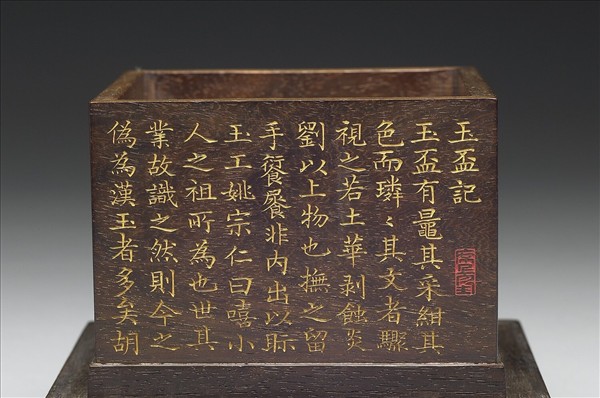 玉盃記
玉盃有其采紺其
色而璘〻其文者驟
視之若土華剝蝕炎
劉以上物也撫之留
手非內出以眎
玉工姚宗仁曰嘻小
人之祖所為也世其
業故識之然則今之
偽為漢玉者多矣胡